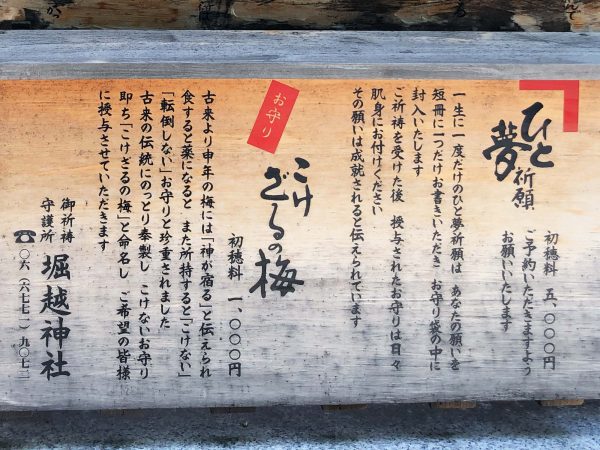 ひと夢祈願
初穂料 五、〇〇〇円
ご予約いただきますよう
お願いいたします
一生に一度だけのひと夢祈願は あなたの願いを
短冊に一つだけお書きいただき お守り袋の中に
封入いたします
ご祈祷を受けた後 授与されたお守りは日々
肌身にお付けください
その願いは成就されると伝えられています
お守り
こけざるの梅
初穂料 一、〇〇〇円
古来より申年の梅には「神が宿る」と伝えられ
食すると薬になると また所持すると「こけない」
「転倒しない」お守りと珍重されました
古来の伝統にのっとり奉製し こけないお守り
即ち「こけざるの梅」と命名し ご希望の皆様
に授与させていただきます
御祈祷
守護所 堀越神社
☎〇六(六七七一)九〇七二